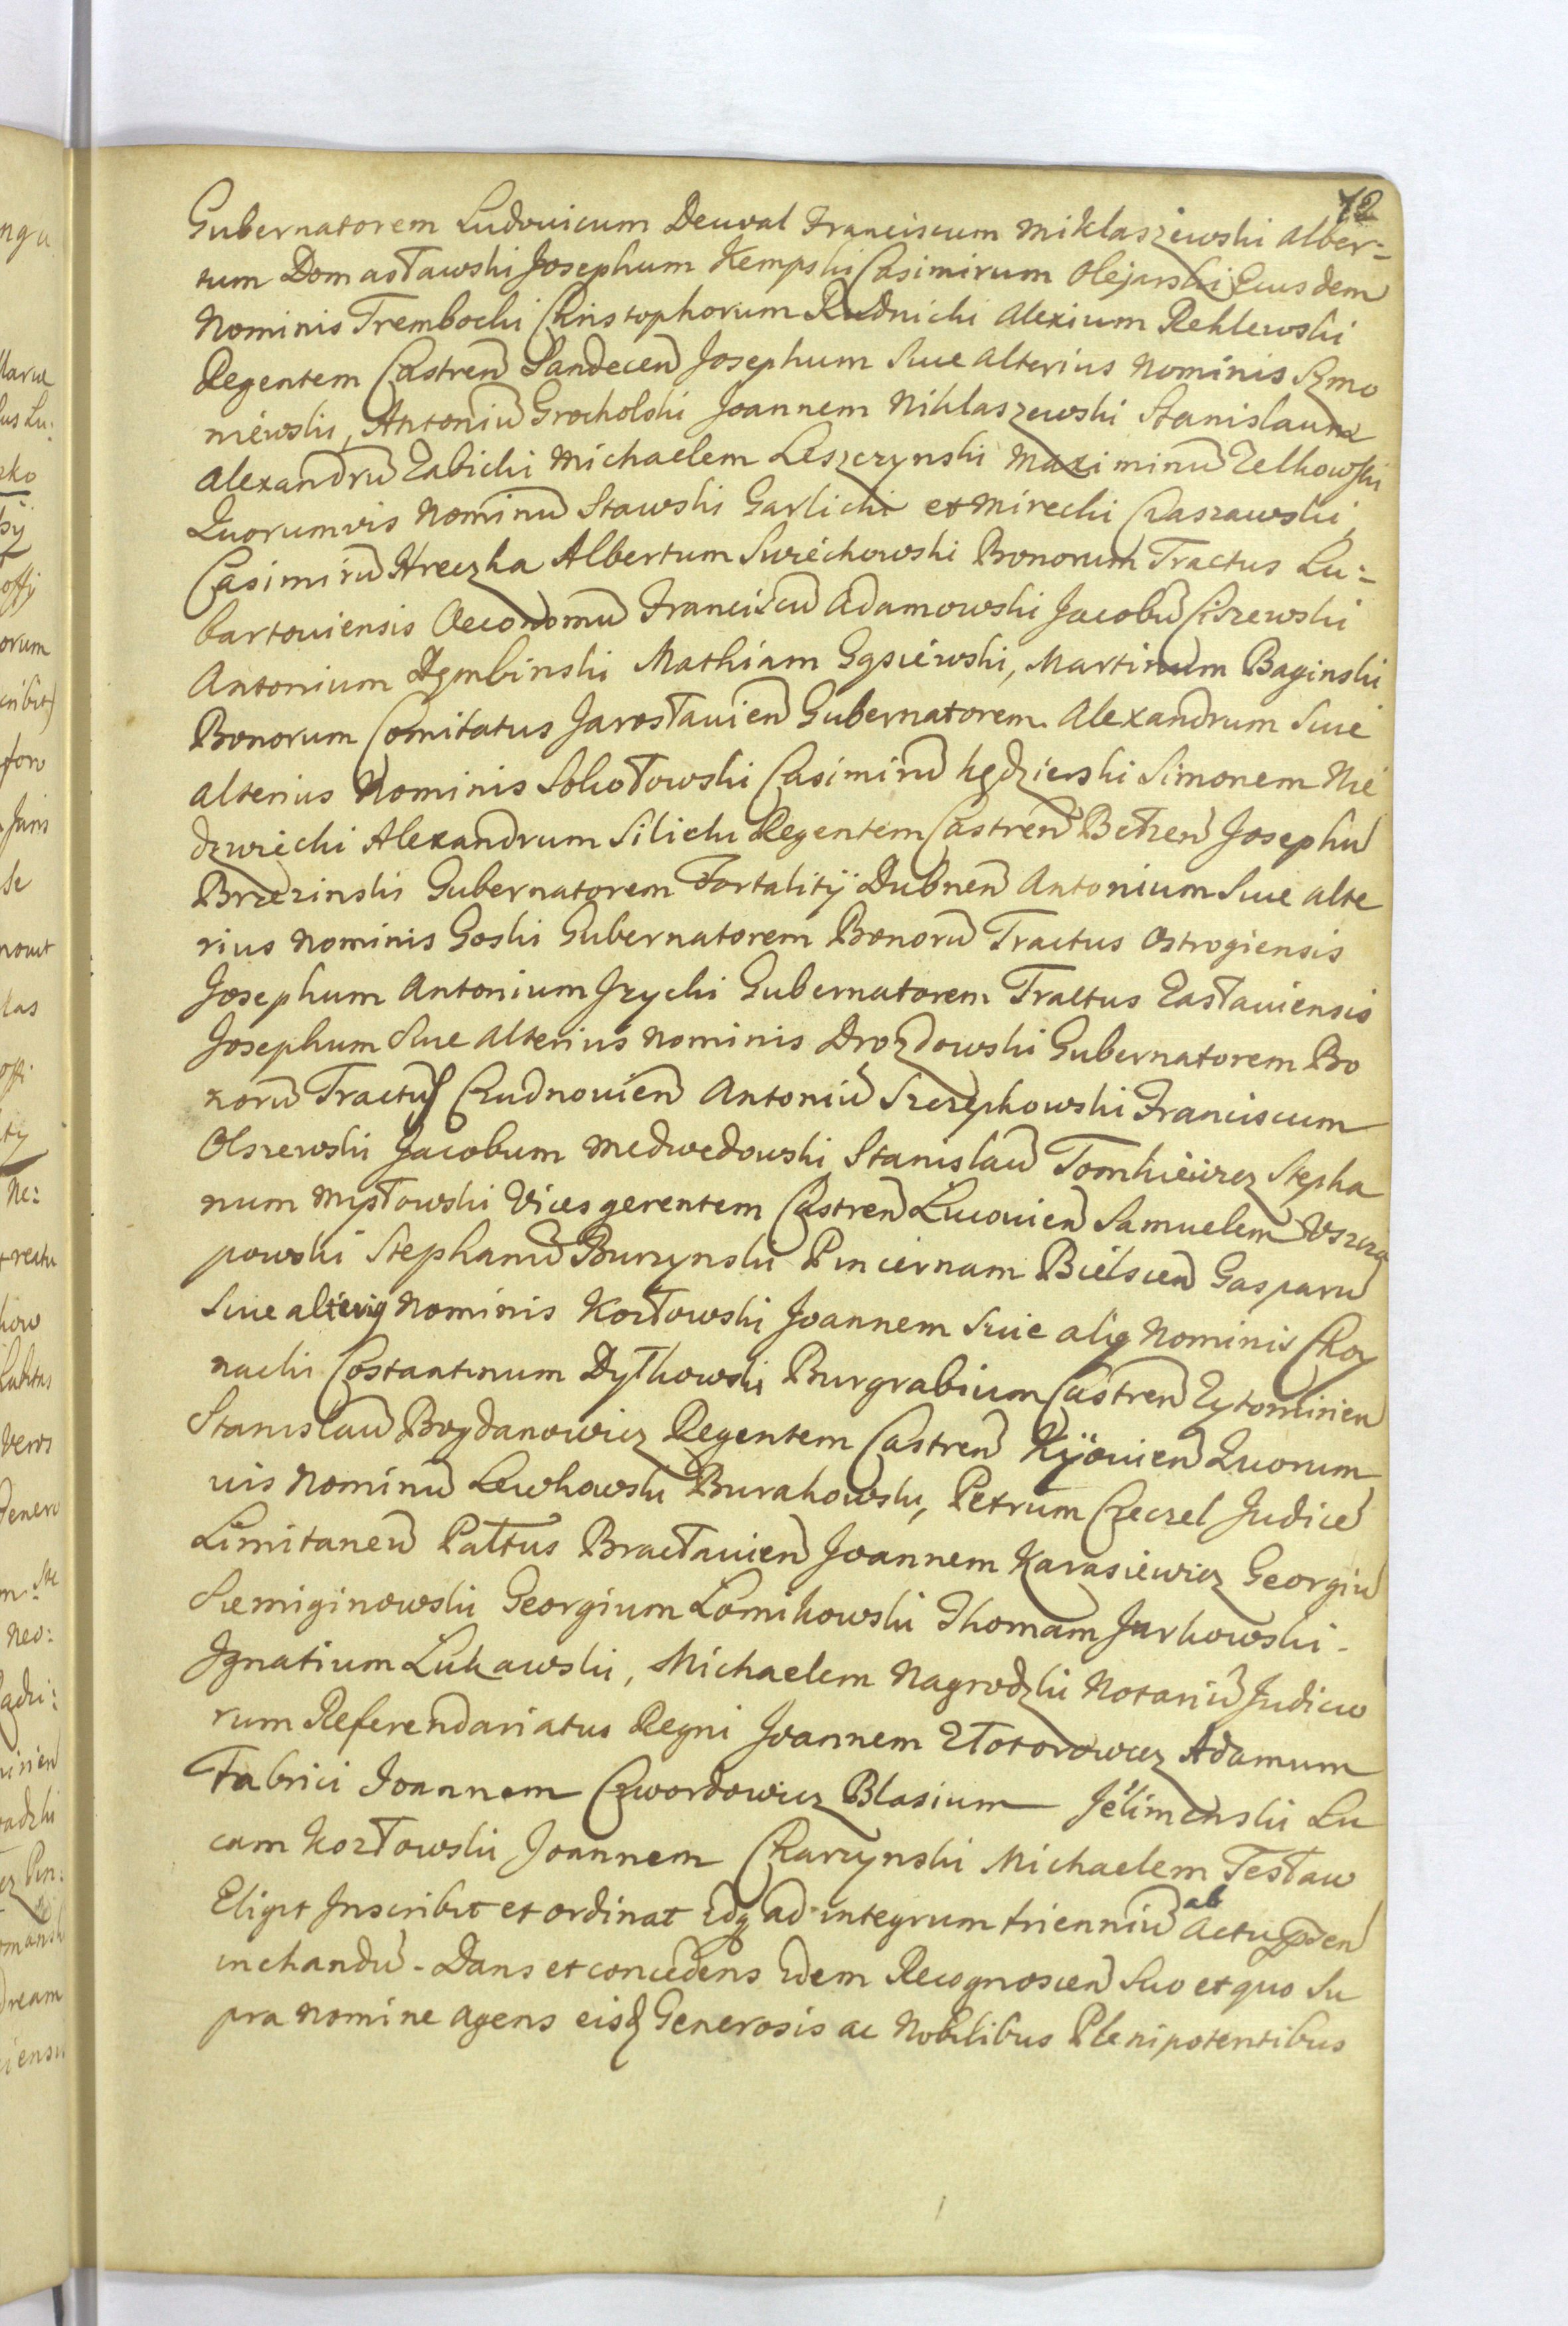 12
Gubernatorem Ludovicum Deuval Franciscum Miklaszewski Alber=
tum Domasławski Josephum Kempski Casimirum Olejarski Eiusdem
Nominis Trembecki Christophorum Rudnicki Alexium Rehlewski
Regentem Castren Sandecen Josephum Siue alterius Nominis Szmo
niewski, Antoniū Grocholski Joannem Niklaszewski Stanislaum
Alexandrū Zabicki Michaelem Leszczynski Maximinū Zelkowski
Quorumvis Nominū Stawski Garlicki et Mirecki Czaszawski,
Casimirū Hreczka Albertum Swiechowski Bonorum Tractus Lu=
bartoviensis Oeconomū Franciscū Adamowski Jacobū Ciszewski
Antonium Dęmbinski Mathiam Gąsiewski, Martinum Baginski
Bonorum Comitatus Jarosławien Gubernatorem Alexandrum Siue
alterius Nominis Sokołowski Casimirū Kędzierski Simonem Nie
dzwiecki Alexandrum Silicki Regentem Castren Bełzen Josephū
Brzezinski Gubernatorem Fortalitÿ Dubnen Antonium Siue alte
rius Nominis Goski Gubernatorem Bonorū Tractus Ostrogiensis
Josephum Antonium Jzycki Gubernatorem Tractus Zasławiensis
Josephum Siue Alterius Nominis Drozdowski Gubernatorem Bo
norū Tractus Cudnovien Antoniū Szczepkowski Franciscum
Olszewski Jacobum Medwedowski Stanislaū Tomkiewicz Stepha
num Mysłowski Vices gerentem Castren Luceovien Samuelem Uszcza
powski Stephanū Burzynski Pincernam Bielscen Gasparū
Siue alterig Nominis Kozłowski Joannem Siue alig Nominis Choy
nacki Costantinum Dytkowski Burgrabium Castren Zytomirien
Stanislaū Bogdanowicz Regentem Castren Kijovien Quorum
vis Nominū Lewkowski Burakowski, Petrum Czeczel Judicē
Limitaneū Pałtus Bracławien Joannem Karasiewicz Georgiū
Siemiginowski Georgium Łomikowski Thomam Jurkowski -
Jgnatium Lukawski, Michaelem Nagrodzki Notariū Judicio
rum Referendariatus Regni Joannem Złotorowicz Adamum
Fabrici Joannem Czwordowicz Blasium Jelimenski Lu
cam Kozłowski Joannem Charzynski Michaelem Tesław
Eligit Jnscribit et ordinat Jdq ad integrum trienniū ab Actu pden
inchandū - Dans et concedens Jdem Recognoscen Suo et quo Su
pra nomine agens eisd Generosis ac Nobilibus Plenipotentibus